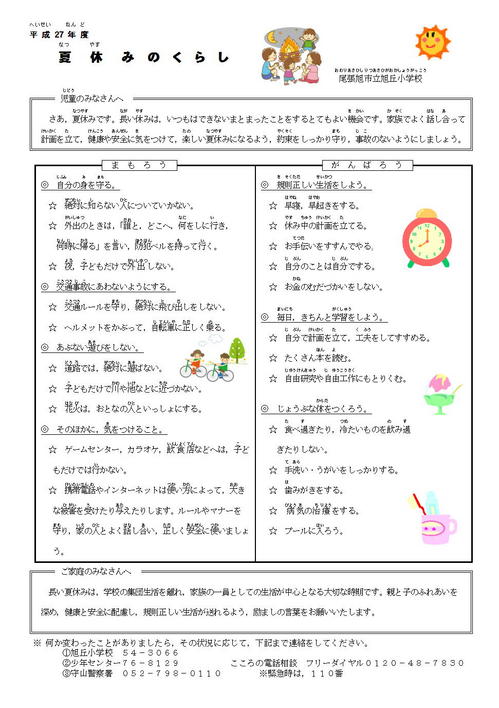 平成27年度
夏休みのくらし
尾張旭市立旭丘小学校
児童のみなさんへ
さあ，夏休みです。夏休みは，いつもはできないまとまったことをするとてもよい機会です。家族でよく話し合って
計画を立て，健康や安全に気をつけて，楽しい夏休みになるよう，約束をしっかり守り，事故のないようにしましょう。
まもろう
◎ 自分の身を守る。
☆ 絶対に知らない人についていかない。
☆ 外出のときは，「誰と，どこへ，何をしに行き，
何時に帰る」を言い，防犯ベルを持って行く。
☆ 夜，子どもだけで外出しない。
◎ 交通事故にあわないようにする。
☆ 交通ルールを守り，絶対に飛び出しをしない。
☆ ヘルメットをかぶって，自転車に正しく乗る。
◎ あぶない遊びをしない。
☆ 道路では，絶対に遊ばない。
☆ 子どもだけで川や池などに近づかない。
☆ 花火は，おとなの人といっしょにする。
◎ そのほかに，気をつけること。
☆ ゲームセンター，カラオケ，飲食店などへは，子ど
もだけでは行かない。
☆ 携帯電話やインターネットは使い方によって，大き
な被害を受けたり与えたりします。ルールやマナーを
守り，家の人とよく話し合い，正しく安全に使いましょ
う。
がんばろう
◎ 規則正しい生活をしよう。
☆ 早寝，早起きをする。
☆ 休み中の計画を立てる。
☆ お手伝いをすすんでやる。
☆ 自分のことは自分でする。
☆ お金のむだづかいをしない。
◎ 毎日，きちんと学習をしよう。
☆ 自分で計画を立て，工夫をしてすすめる。
☆ たくさん本を読む。
☆ 自由研究や自由工作にもとりくむ。
◎ じょうぶな体をつくろう。
☆ 食べ過ぎたり，冷たいものを飲み過
ぎたりしない。
☆ 手洗い・うがいをしっかりする。
☆ 歯みがきをする。
☆ 病気の治療をする。
☆ プールに入ろう。
ご家庭のみなさんへ
長い夏休みは，学校の集団生活を離れ，家族の一員としての生活が中心となる大切な時期です。親と子のふれあいを
深め，健康と安全に配慮し，規則正しい生活が送れるよう，励ましの言葉をお願いいたします。
※ 何か変わったことがありましたら，その状況に応じて，下記まで連絡をしてください。
①旭丘小学校 ５４－３０６６
②少年センター７６－８１２９ こころの電話相談 フリーダイヤル０１２０－４８－７８３０
③守山警察署 ０５２－７９８－０１１０ ※緊急時は，１１０番